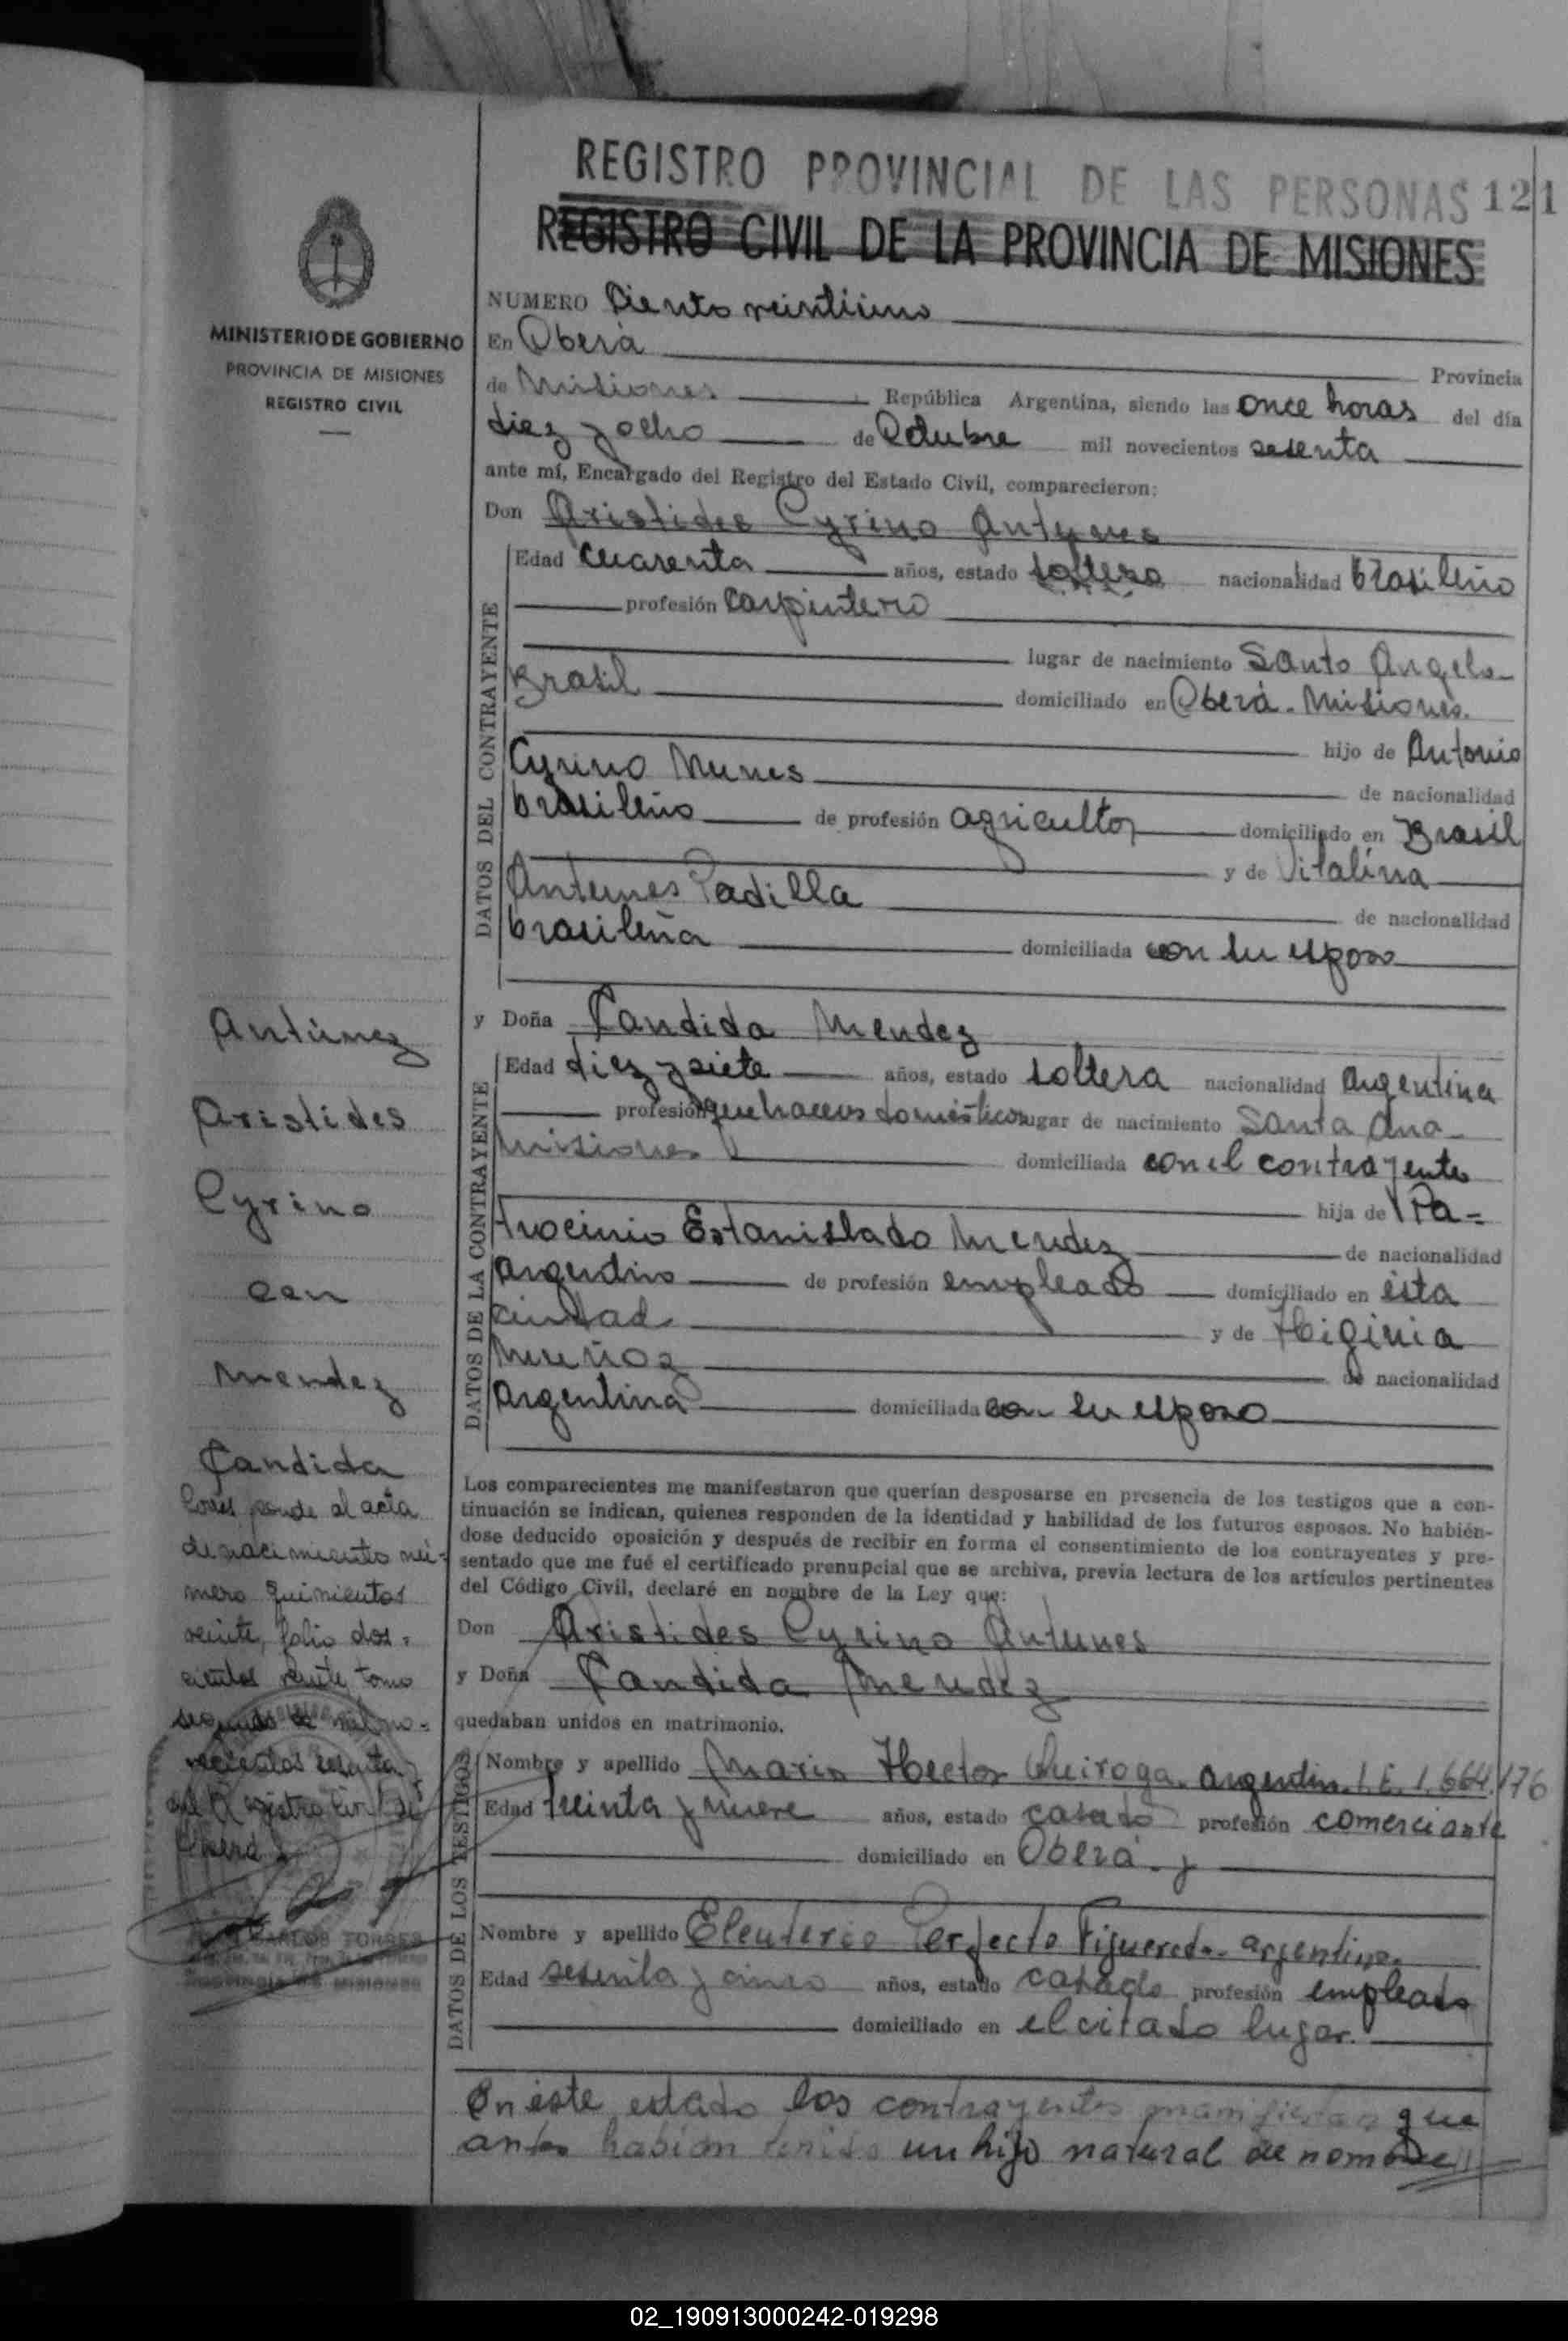 REGISTRO PROVINCIAL DE LAS PERSONAS 121
REGISTRO CIVIL DE LA PROVINCIA DE MISIONES
MINISTERIO DE GOBIERNO
PROVINCIA DE MISIONES
REGISTRO CIVIL
NUMERO Ciento veintiuno
En Oberá Provincia
de Misiones República Argentina, siendo las once horas del día
diez y ocho de Octubre mil novecientos sesenta
ante mí, Encargado del Registro del Estado Civil, comparecieron:
Don Aristides Cyrino Antunes
DATOS DEL CONTRAYENTE
Edad cuarenta años, estado soltero nacionalidad brasileño
profesión carpintero
lugar de nacimiento Santo Angelo-
Brasil domiciliado en Oberá. Misiones.
hijo de Antonio
Cyrino Nunes de nacionalidad
brasileño de profesión agricultor domiciliado en Brasil
y de Vitalina
Antunes Padilla de nacionalidad
brasileña domiciliada con su esposo
y Doña Candida Mendez
DATOS DE LA CONTRAYENTE
Edad diez y siete años, estado soltera nacionalidad argentina
profesión quehaceres domésticos lugar de nacimiento Santa Ana-
Misiones domiciliada con el contrayente
hija de Pa=
trocinio Estanislado Mendez de nacionalidad
argentino de profesión empleado domiciliado en ésta
ciudad y de Higinia
Muñoz de nacionalidad
argentina domiciliada con su esposo
Los comparecientes me manifestaron que querían desposarse en presencia de los testigos que a con-
tinuación se indican, quienes responden de la identidad y habilidad de los futuros esposos. No habién-
dose deducido oposición y después de recibir en forma el consentimiento de los contrayentes y pre-
sentado que me fué el certificado prenupcial que se archiva, previa lectura de los artículos pertinentes
del Código Civil, declaré en nombre de la Ley que:
Don Aristides Cyrino Antunes
y Doña Candida Mendez
quedaban unidos en matrimonio.
DATOS DE LOS TESTIGOS
Nombre y apellido Mario Hector Quiroga. argentino. L.E. 1.664.176
Edad treinta y nueve años, estado casado profesión comerciante
domiciliado en Oberá. y
Nombre y apellido Eleuterio Perfecto Figueredo. argentino.
Edad sesenta y cinco años, estado casado profesión empleado
domiciliado en el citado lugar.
En éste estado los contrayentes manifiestan que
antes habían tenido un hijo natural de nombre//
Antúnez
Aristides
Cyrino
con
Mendez
Candida
Corresponde al acta
de nacimiento nú-
mero quinientos
veinte, folio dos=
cientos veinte, tomo
segundo
Oberá
CARLOS TORRES
Provincia de Misiones
02_190913000242-019298